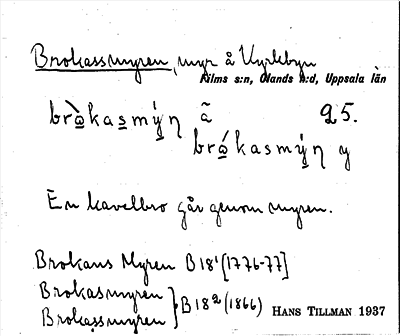 Brokassmyren, myr å Kyrkbyn
Films s:n, Olands h:d, Uppsala län
brò̲kas̲mýn ã 25.
brókasmýn y
En kavelbro går genom myren.
Brokans Myren B18¹[1776-77]
Brokasmyren
Brokassmyren } B18²(1866)
HANS TILLMAN 1937